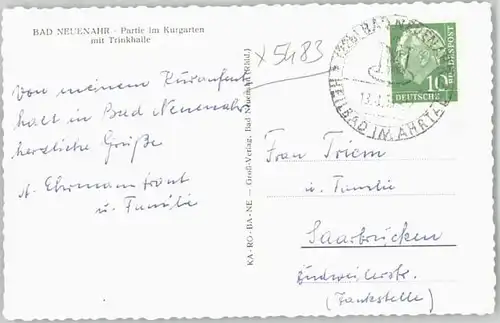 BAD NEUENAHR - Partie im Kurgarten
mit Trinkhalle
Von meinem Kuraufent
halt in Bad Neuenahr
herzliche Grüße
u. Familie
KA-RO-BA-NE — Groß-Verlag, Bad Neuenahr (Rhld.)
x 5483
BAD NEUENA
HEILBAD IM AHRTAL
10
DEUTSCHE
BUNDESPOST
Frau Triem
u. Familie
Saarbrücken
Sudweilerstr.
(Tankstelle)